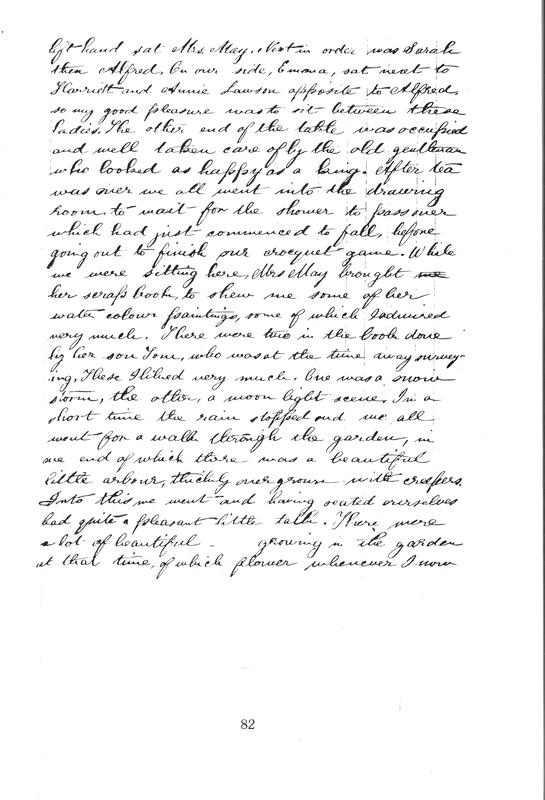 left hand sat Mrs. May. Next in order was Sarah
then Alfred. On our side, Emma, sat next to
Harriett and Annie Lawson opposite to Alfred,
so my good pleasure was to sit between these
ladies. The other end of the table was occupied
and well taken care of by the old gentleman
who looked as happy as a king. After tea
was over we all went into the drawing
room, to wait for the shower to pass over
which had just commenced to fall, before
going out to finish our crocquet game. While
we were sitting here, Mrs May brought me
her scrap book, to shew me some of her
water colour paintings, some of which I admired
very much. There were two in the book done
by her son Tom, who was at the time away survey-
ing, These I liked very much. One was a snow
storm, the other, a moon light scene. In a
short time the rain stopped and we all
went for a walk through the garden, in
one end of which there was a beautiful
little arbour, thickly overgrown with creepers.
Into this we went and having seated ourselves
had quite a pleasant little talk. There were
a lot of beautiful growing in the garden
at that time, of which flower whenever I now
82